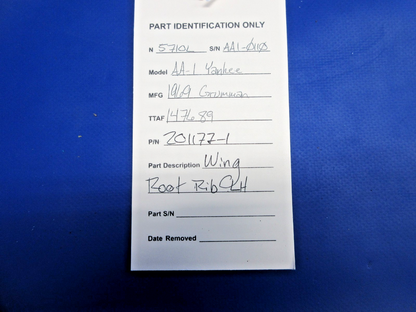 PART IDENTIFICATION ONLY
N 5710L S/N AA1-0108
Model AA-1 Yankee
MFG 1969 Grumman
TTAF 1476.89
P/N 201177-1
Part Description Wing
Root Rib LH
Part S/N
Date Removed